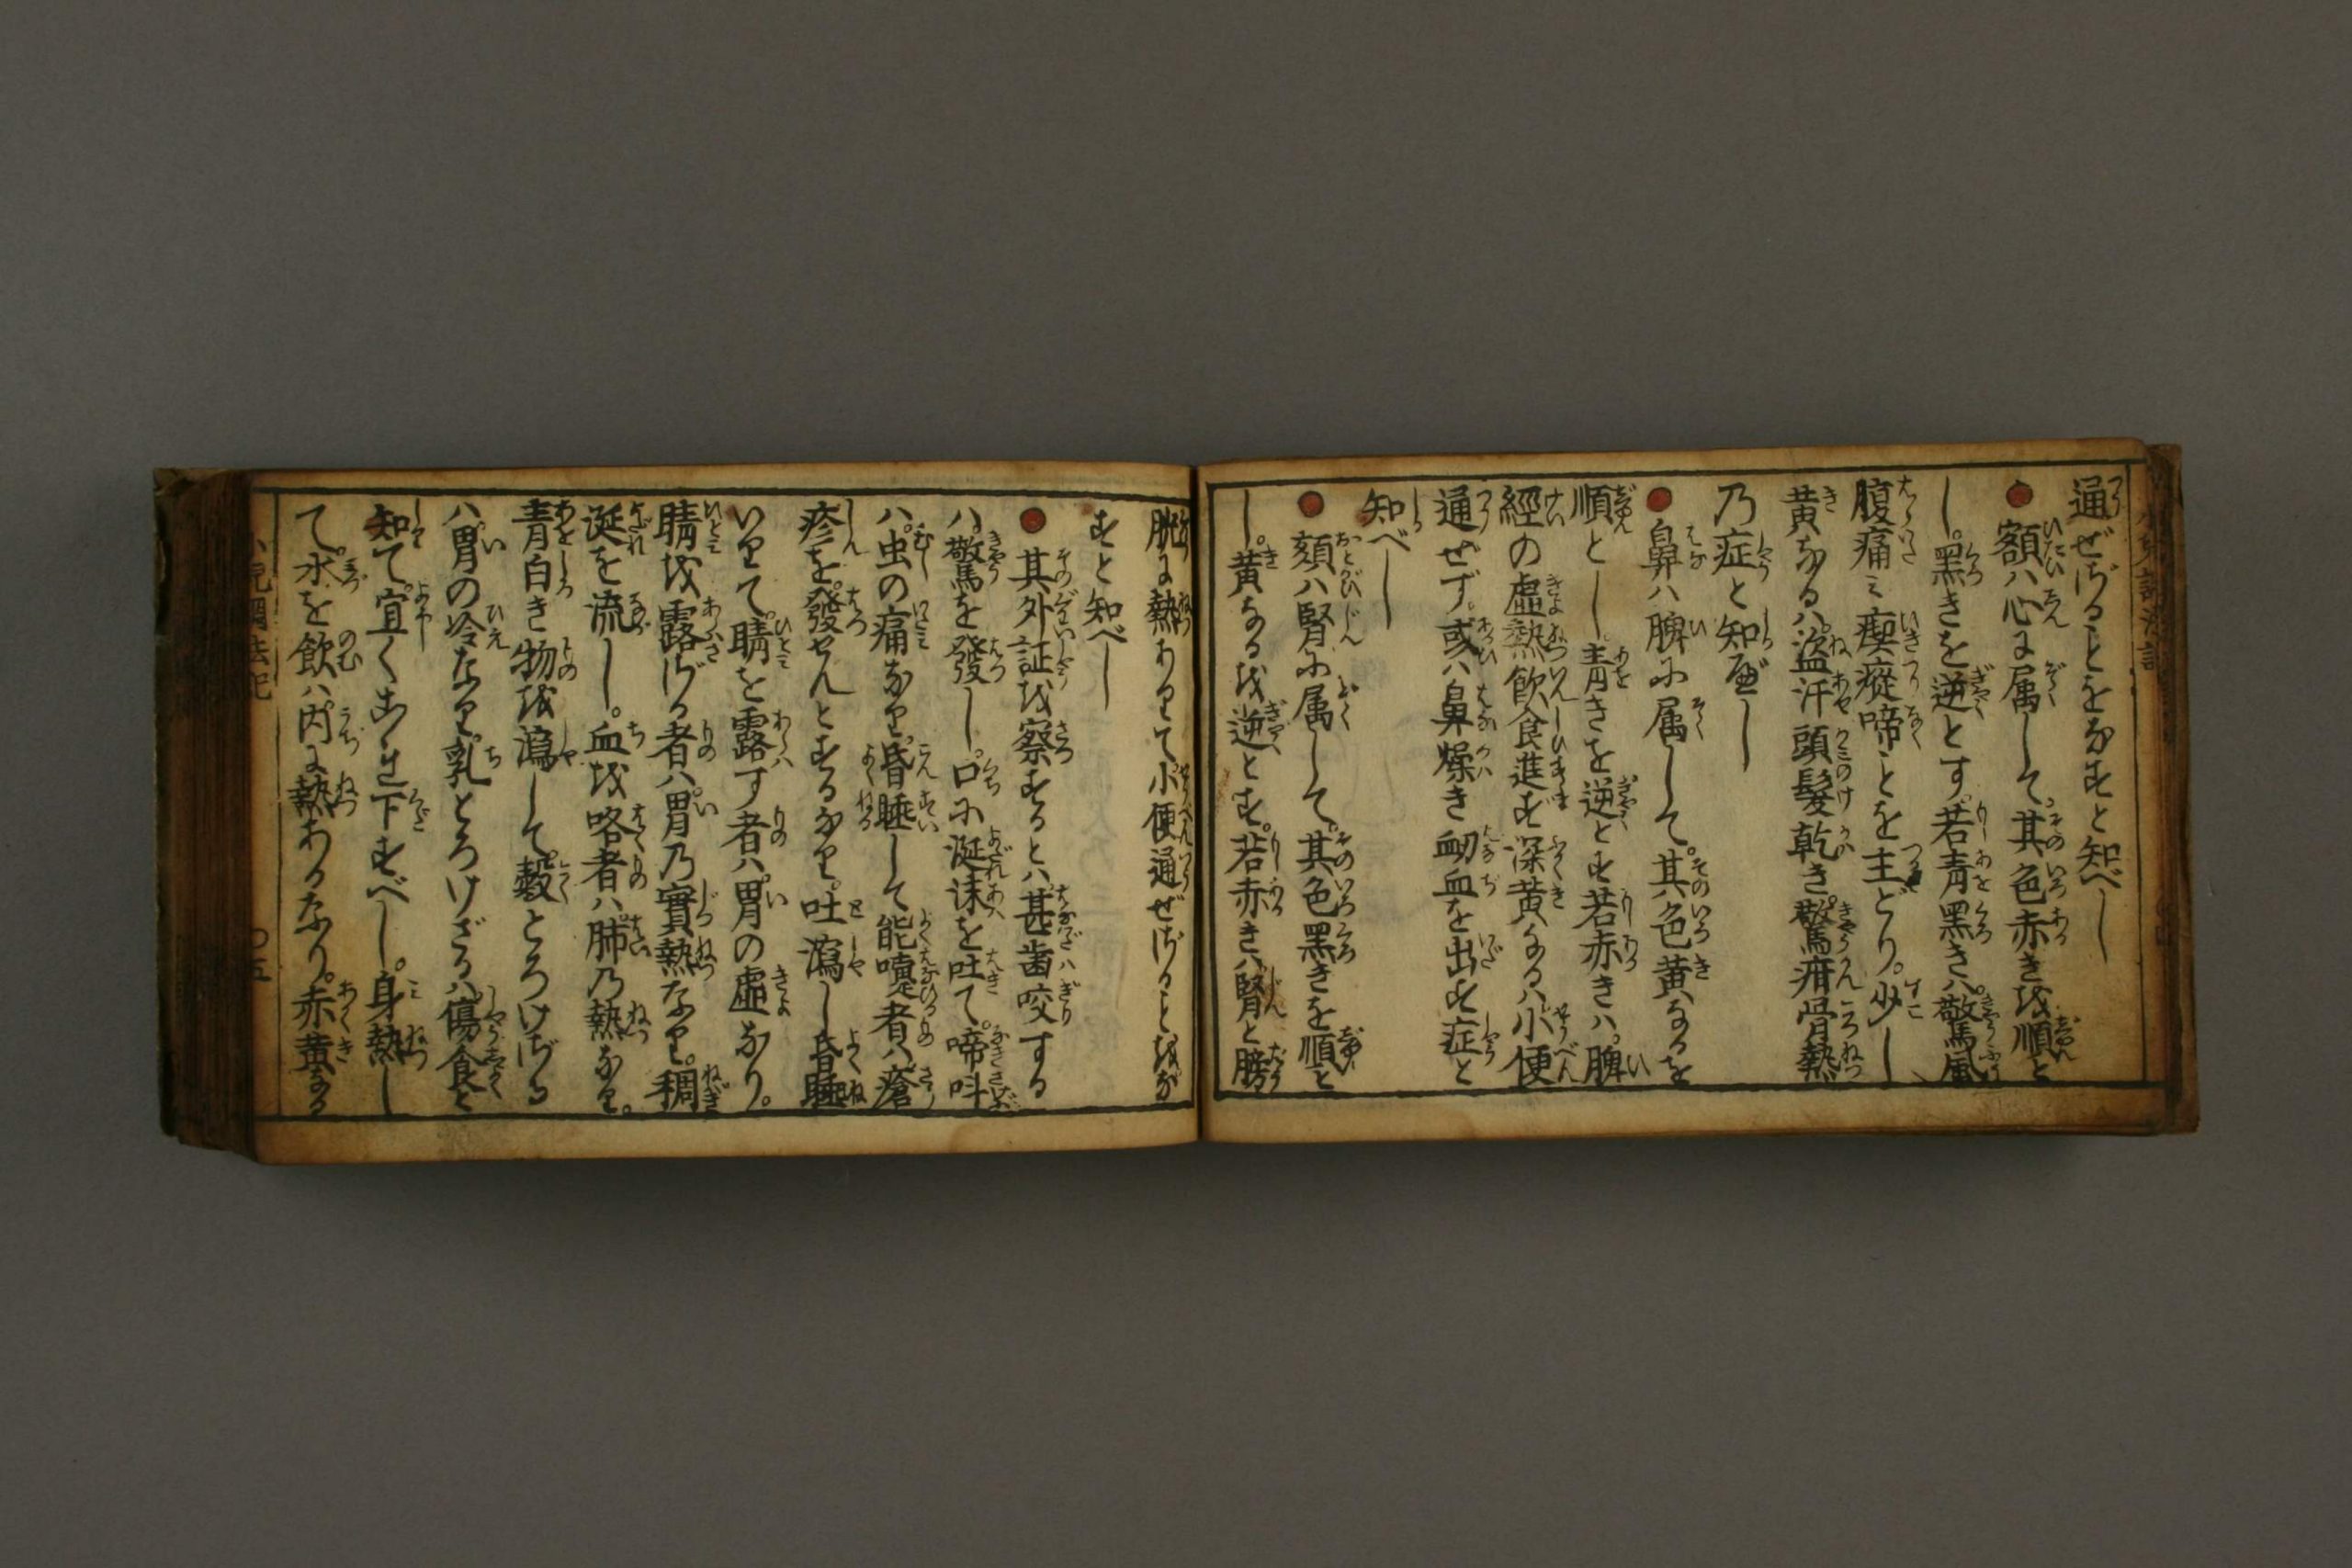 通ぜざることをなすと知べし
●額ハ心に属して。其色赤きを順と
し。黒きを逆とす。若青黒きハ。驚風
腹痛ミ瘈瘲啼ことを主どり。少し
黄なるハ。盗汗頭髪乾き。驚疳骨熱
乃症と知べし
●鼻ハ脾に属して。其色黄なるを
順とし。青きを逆とす若赤きハ。脾
經の虚熱飲食進ず深黄なるハ。小便
通ぜず。或ハ鼻燥き衂血を出す症と
知べし
●頦ハ腎に属して。其色黒きを順と
し。黄なるを逆とす。若赤きハ。腎と膀
胱に熱ありて小便通ぜざることをな
すと知べし
●其外証を察するとハ。甚歯咬する
ハ。驚を發し。口に涎沫を吐て。啼叫
ハ。虫の痛なり。昏睡して能嚔者ハ。瘡
疹を。發せんとするなり。吐瀉し昏睡
いりて。睛を露す者ハ。胃の虚なり。
睛を露ざる者ハ。胃乃實熱なり。稠
涎を流し。血を咯者ハ。肺乃熱なり。
青白き物を瀉して。穀とろけざる
ハ。胃の冷なり。乳とろけざるハ。傷食と
知て。宜くこれを下すべし。身熱し
て。水を飲ハ。内に熱あるなり。赤黄なる